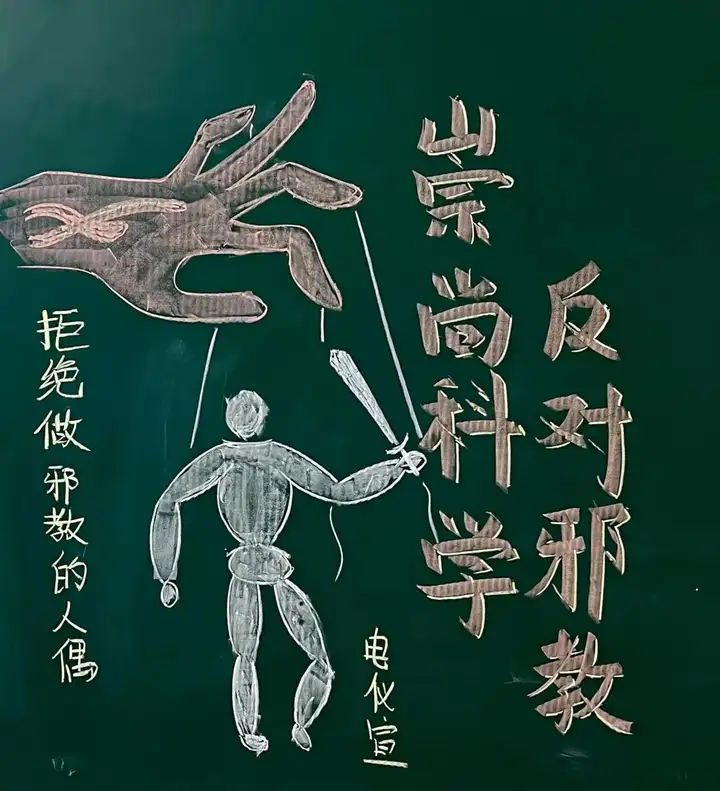 崇尚科学
反对邪教
拒绝做邪教的人偶
电仪宣